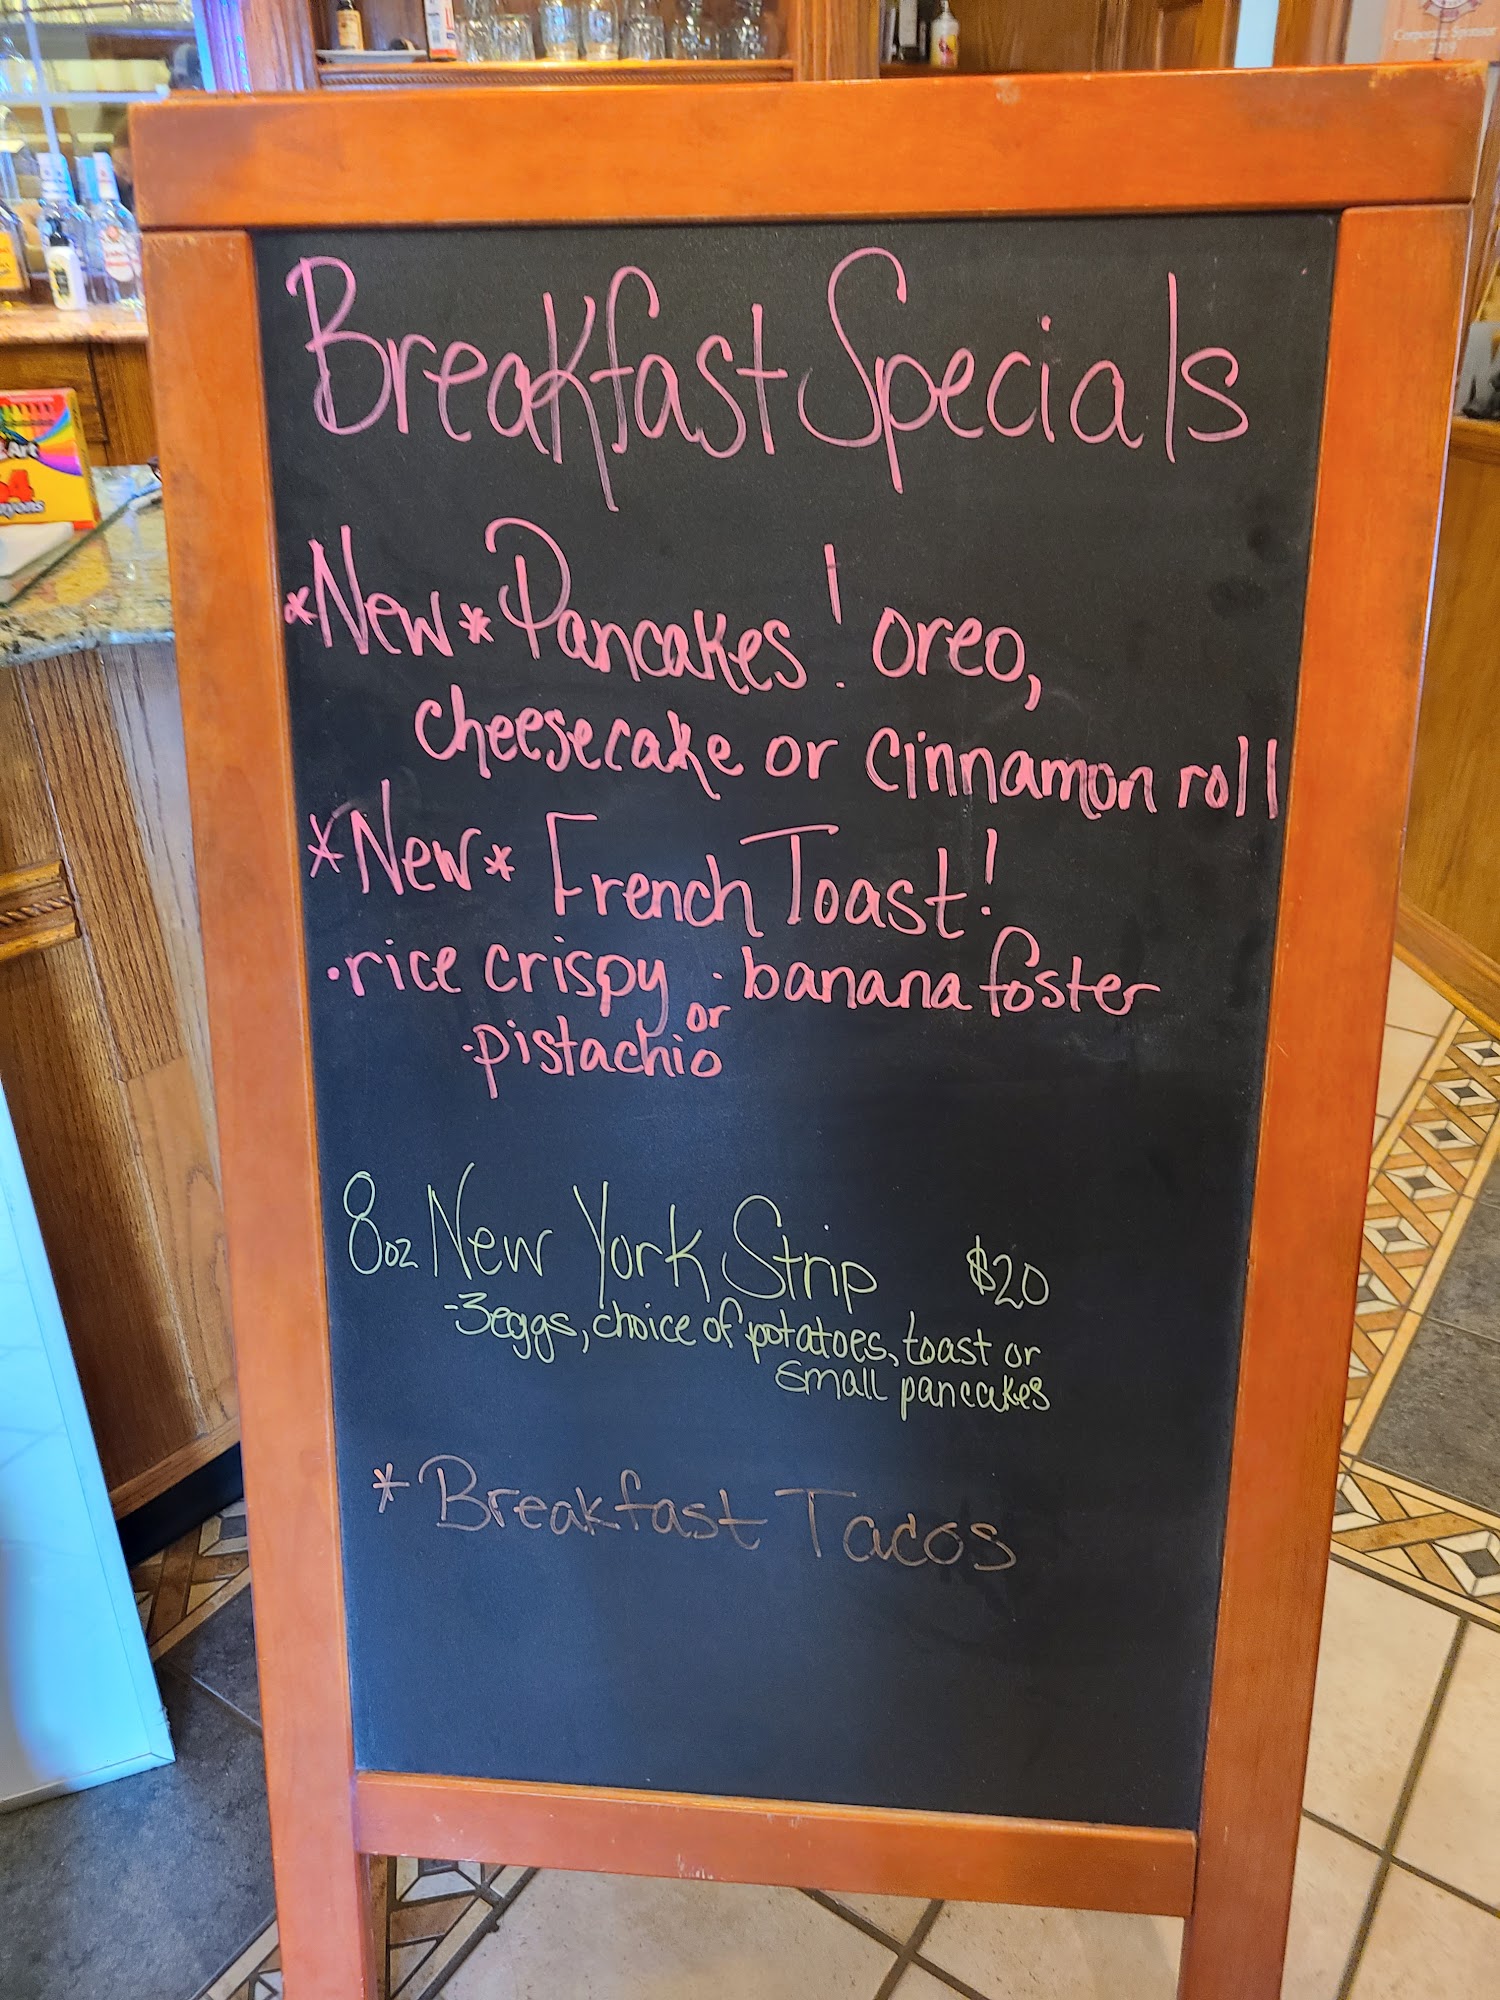 Corporate Sponsor
2019
Art
64
Breakfast Specials
*New* Pancakes! oreo,
cheesecake or cinnamon roll
*New* French Toast!
·rice crispy ·banana foster
or
·pistachio
8oz New York Strip $20
-3eggs, choice of potatoes, toast or
small pancakes
* Breakfast Tacos